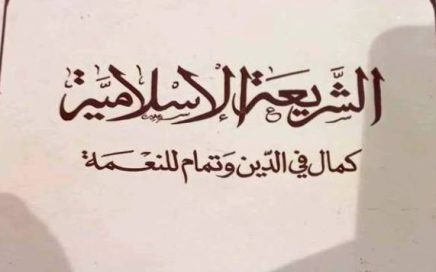 الشَّريعة الإسلاميَّة
كمال في الدّين وَتمام للنعْمَة